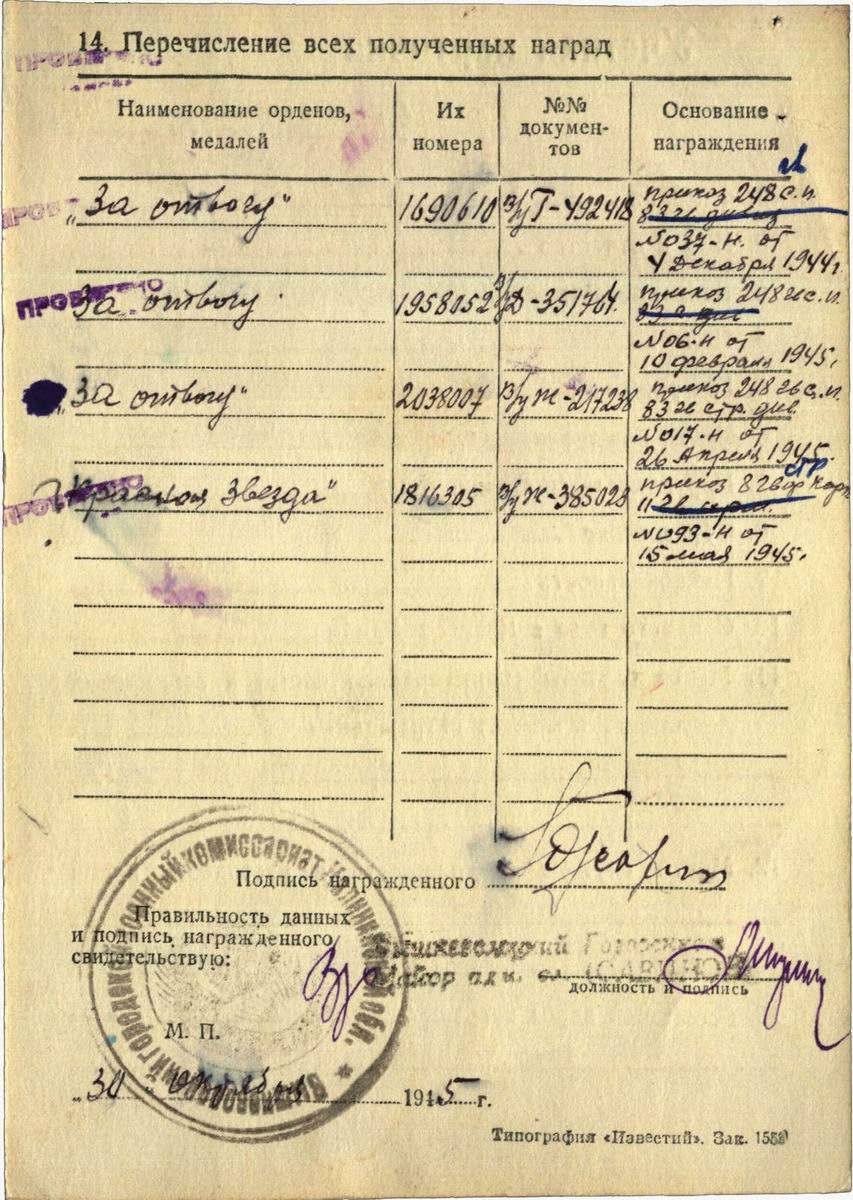 14. Перечисление всех полученных наград
Наименование орденов, медалей
Их номера
№№ докумен-
тов
Основание награждения
„За отвагу“ 1690610 в/у Г-492418 приказ 248 с.п.
83 гв. дивиз
№037-н. от
4 Декабря 1944г.
ПРОВЕРЕНО
За отвагу 1958052 в/у Д-351764. приказ 248 гв с.п.
83 г див
№06-н от
10 февраля 1945г.
„За отвагу“ 2038007 в/у Ж-217238 приказ 248 гв с.п.
83 гв стр. див.
№017-н от
26 Апреля 1945г.
ПРОВЕРЕНО
„Красная Звезда“ 1816305 в/у Ж-385023 приказ 8 гв стр корп
№093-н от
15 мая 1945г.
Подпись награжденного
Правильность данных
и подпись награжденного
свидетельствую:
Вышневолоцкий Горвоенком
Майор адм. сл. (САВИНОВ)
должность и подпись
М. П.
„30 “ октября 1945 г.
Типография «Известий». Зак. 1552